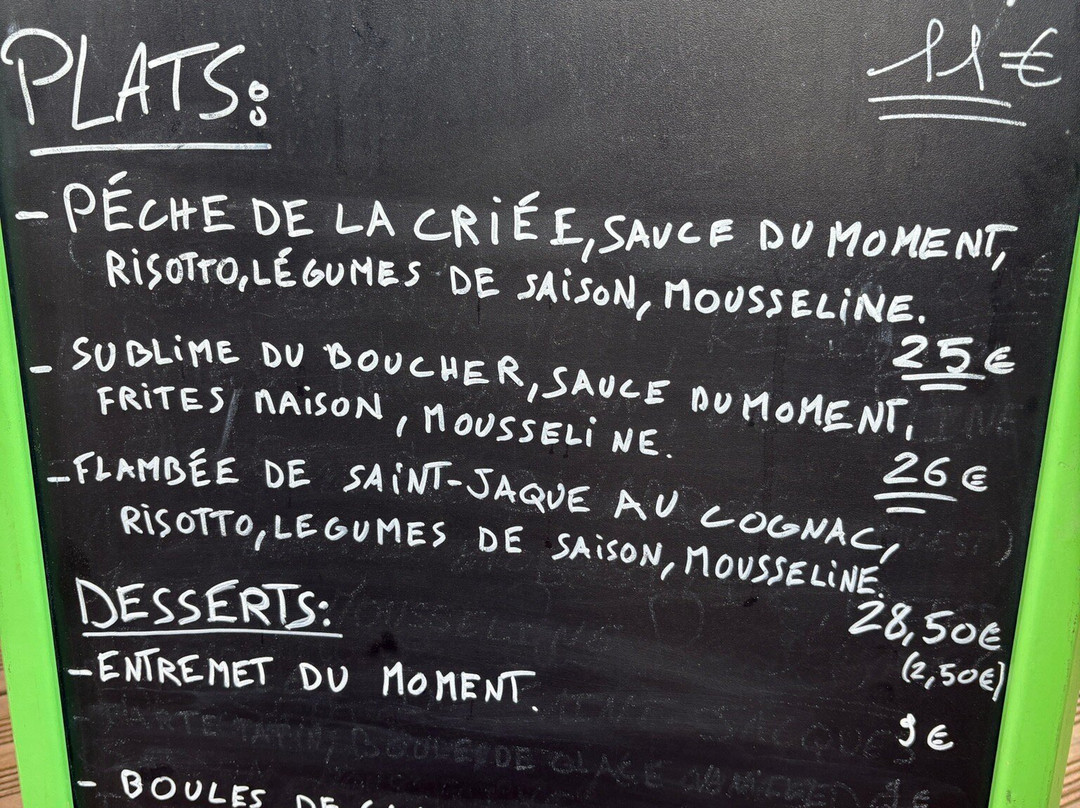 11€
PLATS:
- PÉCHE DE LA CRIÉE, SAUCE DU MOMENT,
RISOTTO, LÉGUMES DE SAISON, MOUSSELINE.
25€
- SUBLIME DU BOUCHER, SAUCE DU MOMENT,
FRITES MAISON, MOUSSELINE.
26€
- FLAMBÉE DE SAINT-JAQUE AU COGNAC,
RISOTTO, LEGUMES DE SAISON, MOUSSELINE.
28,50€
(2,50€)
DESSERTS:
- ENTREMET DU MOMENT.
9€
- BOULES DE